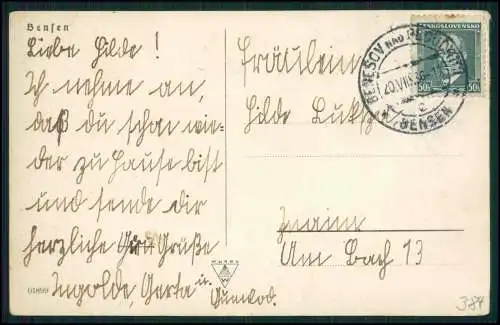 Bensen
Liebe Hilde!
Ich nehme an,
daß du schon wie-
der zu Hause bist
und sende dir
herzliche Grüße
Ingolde, Gerta u.
61899
Fräulein
Hilde Luksch
Znaim
Am Bach 13
ČESKOSLOVENSKO
50h
BENEŠOV NAD
20.VIII.36
BENSEN
384